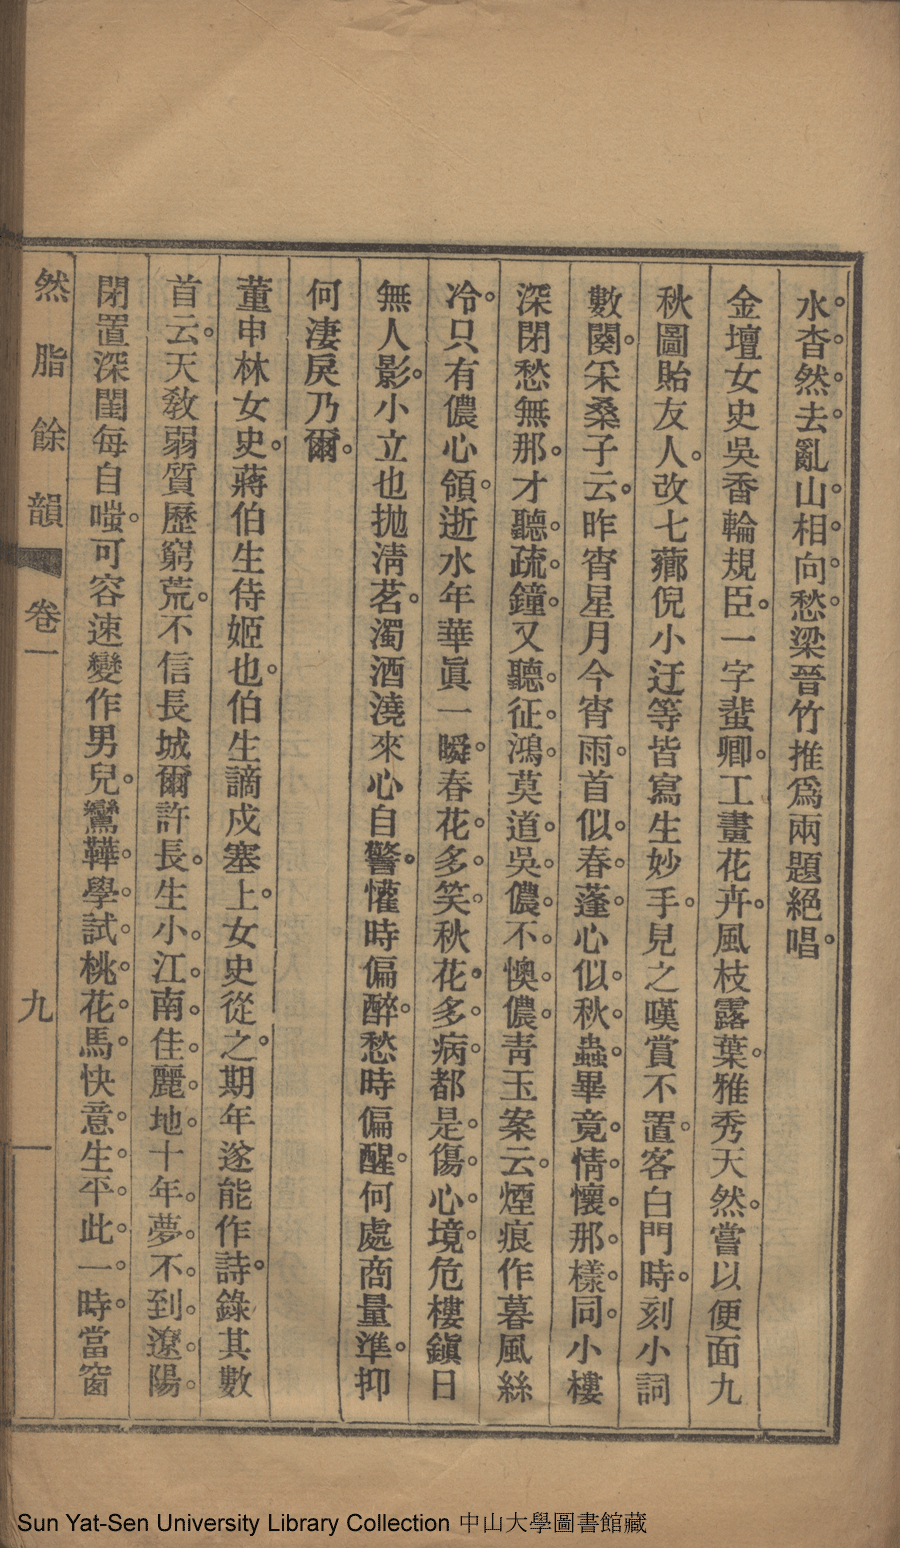 水杳。然。去。亂山。相。向。愁。梁晉竹推爲兩題絕唱。
金壇女史吳香輪規臣。一字蜚卿。工畫花卉。風枝露葉。雅秀天然。嘗以便面九
秋圖貽友人。改七薌倪小迂等皆寫生妙手。見之嘆賞不置。客白門時。刻小詞
數闋。采桑子云。昨宵星月今宵雨。首似。春。蓬。心似。秋。蟲。畢竟。情。懷。那。樣。同。小樓
深閉愁無那。才聽。疏。鐘。又聽。征。鴻。莫道。吳。儂。不。懊。儂。靑玉案云。煙痕作暮風絲
冷。只有儂心領。逝水年華眞一瞬。春花。多。笑。秋花。多。病。都是。傷。心。境。危樓鎭日
無人影。小立也拋淸茗。濁酒澆來心自警。懽時偏醉。愁時偏醒。何處商量準。抑
何淒戾乃爾。
董申林女史。蔣伯生侍姬也。伯生謫戍塞上。女史從之。期年遂能作詩。錄其數
首云。天敎弱質歷窮荒。不信長城爾許長。生小。江。南。佳。麗。地。十年。夢。不。到。遼。陽。
閉置深閨每自嗤。可容速變作男兒。鸞鞾。學。試。桃。花。馬。快意。生。平。此。一。時。當窗
然脂餘韻
卷一
九
Sun Yat-Sen University Library Collection 中山大學圖書館藏